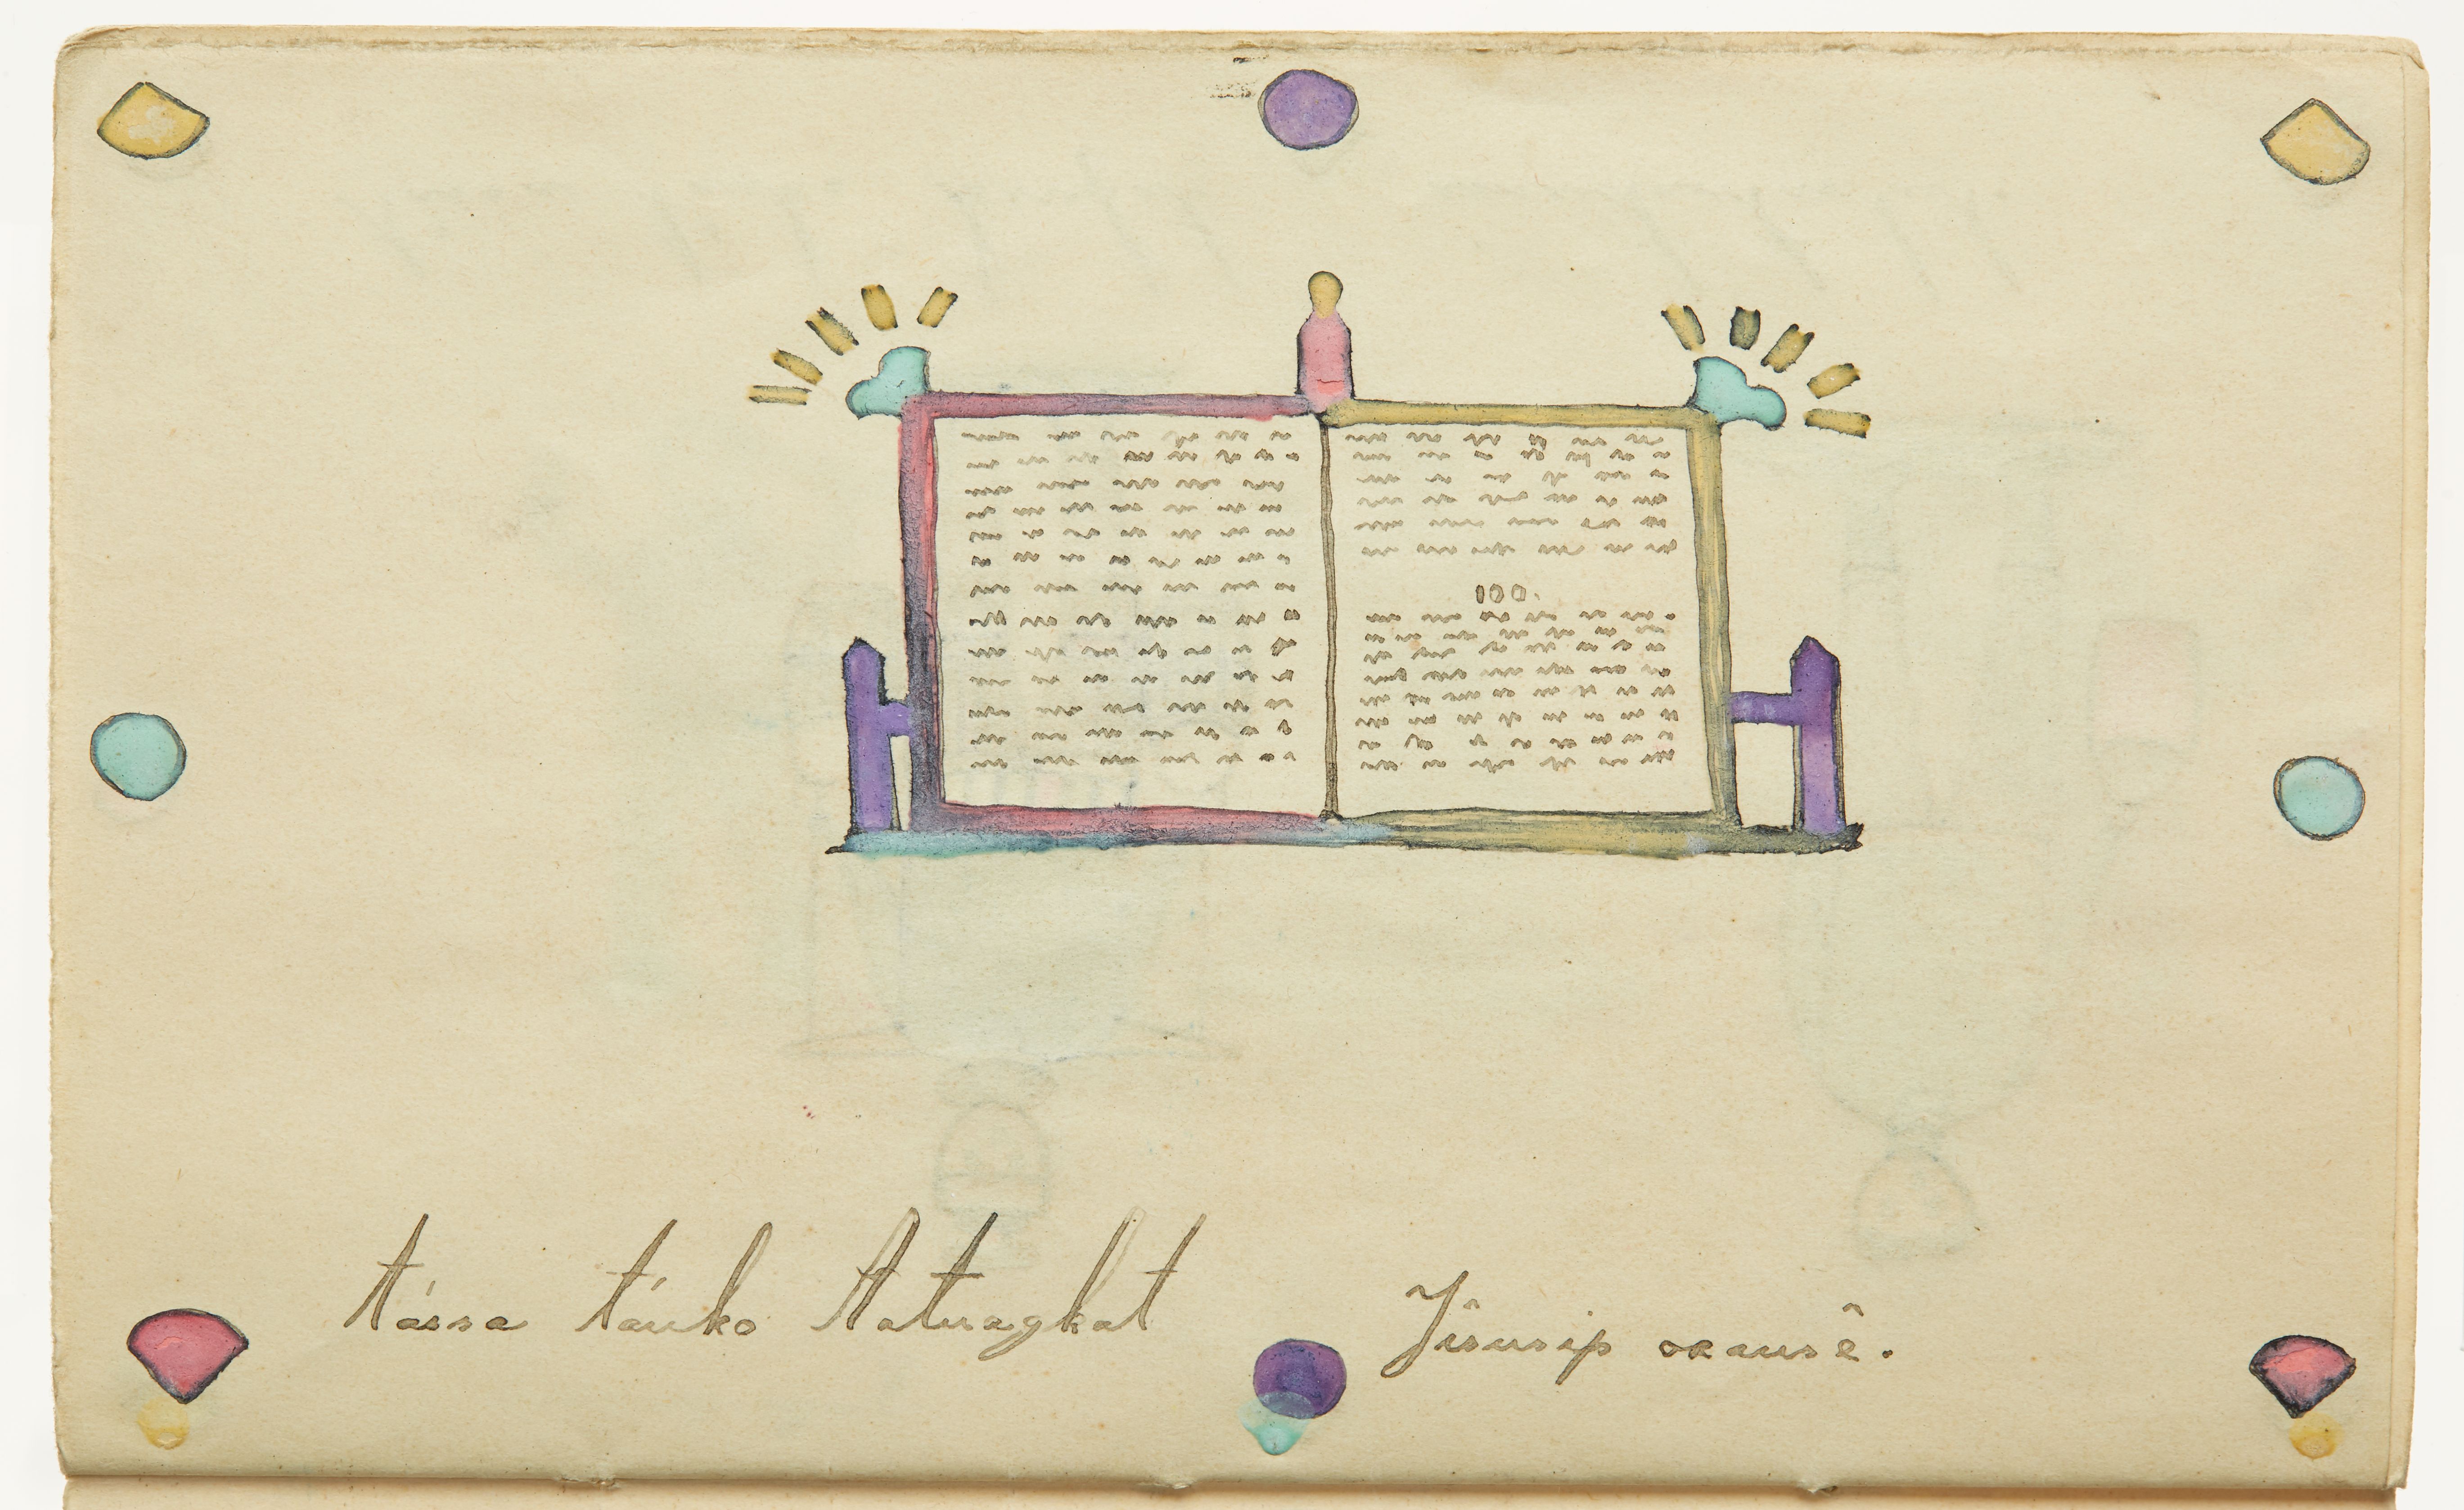 100.
tássa táuko Atuagkat Jisusip oĸausê.